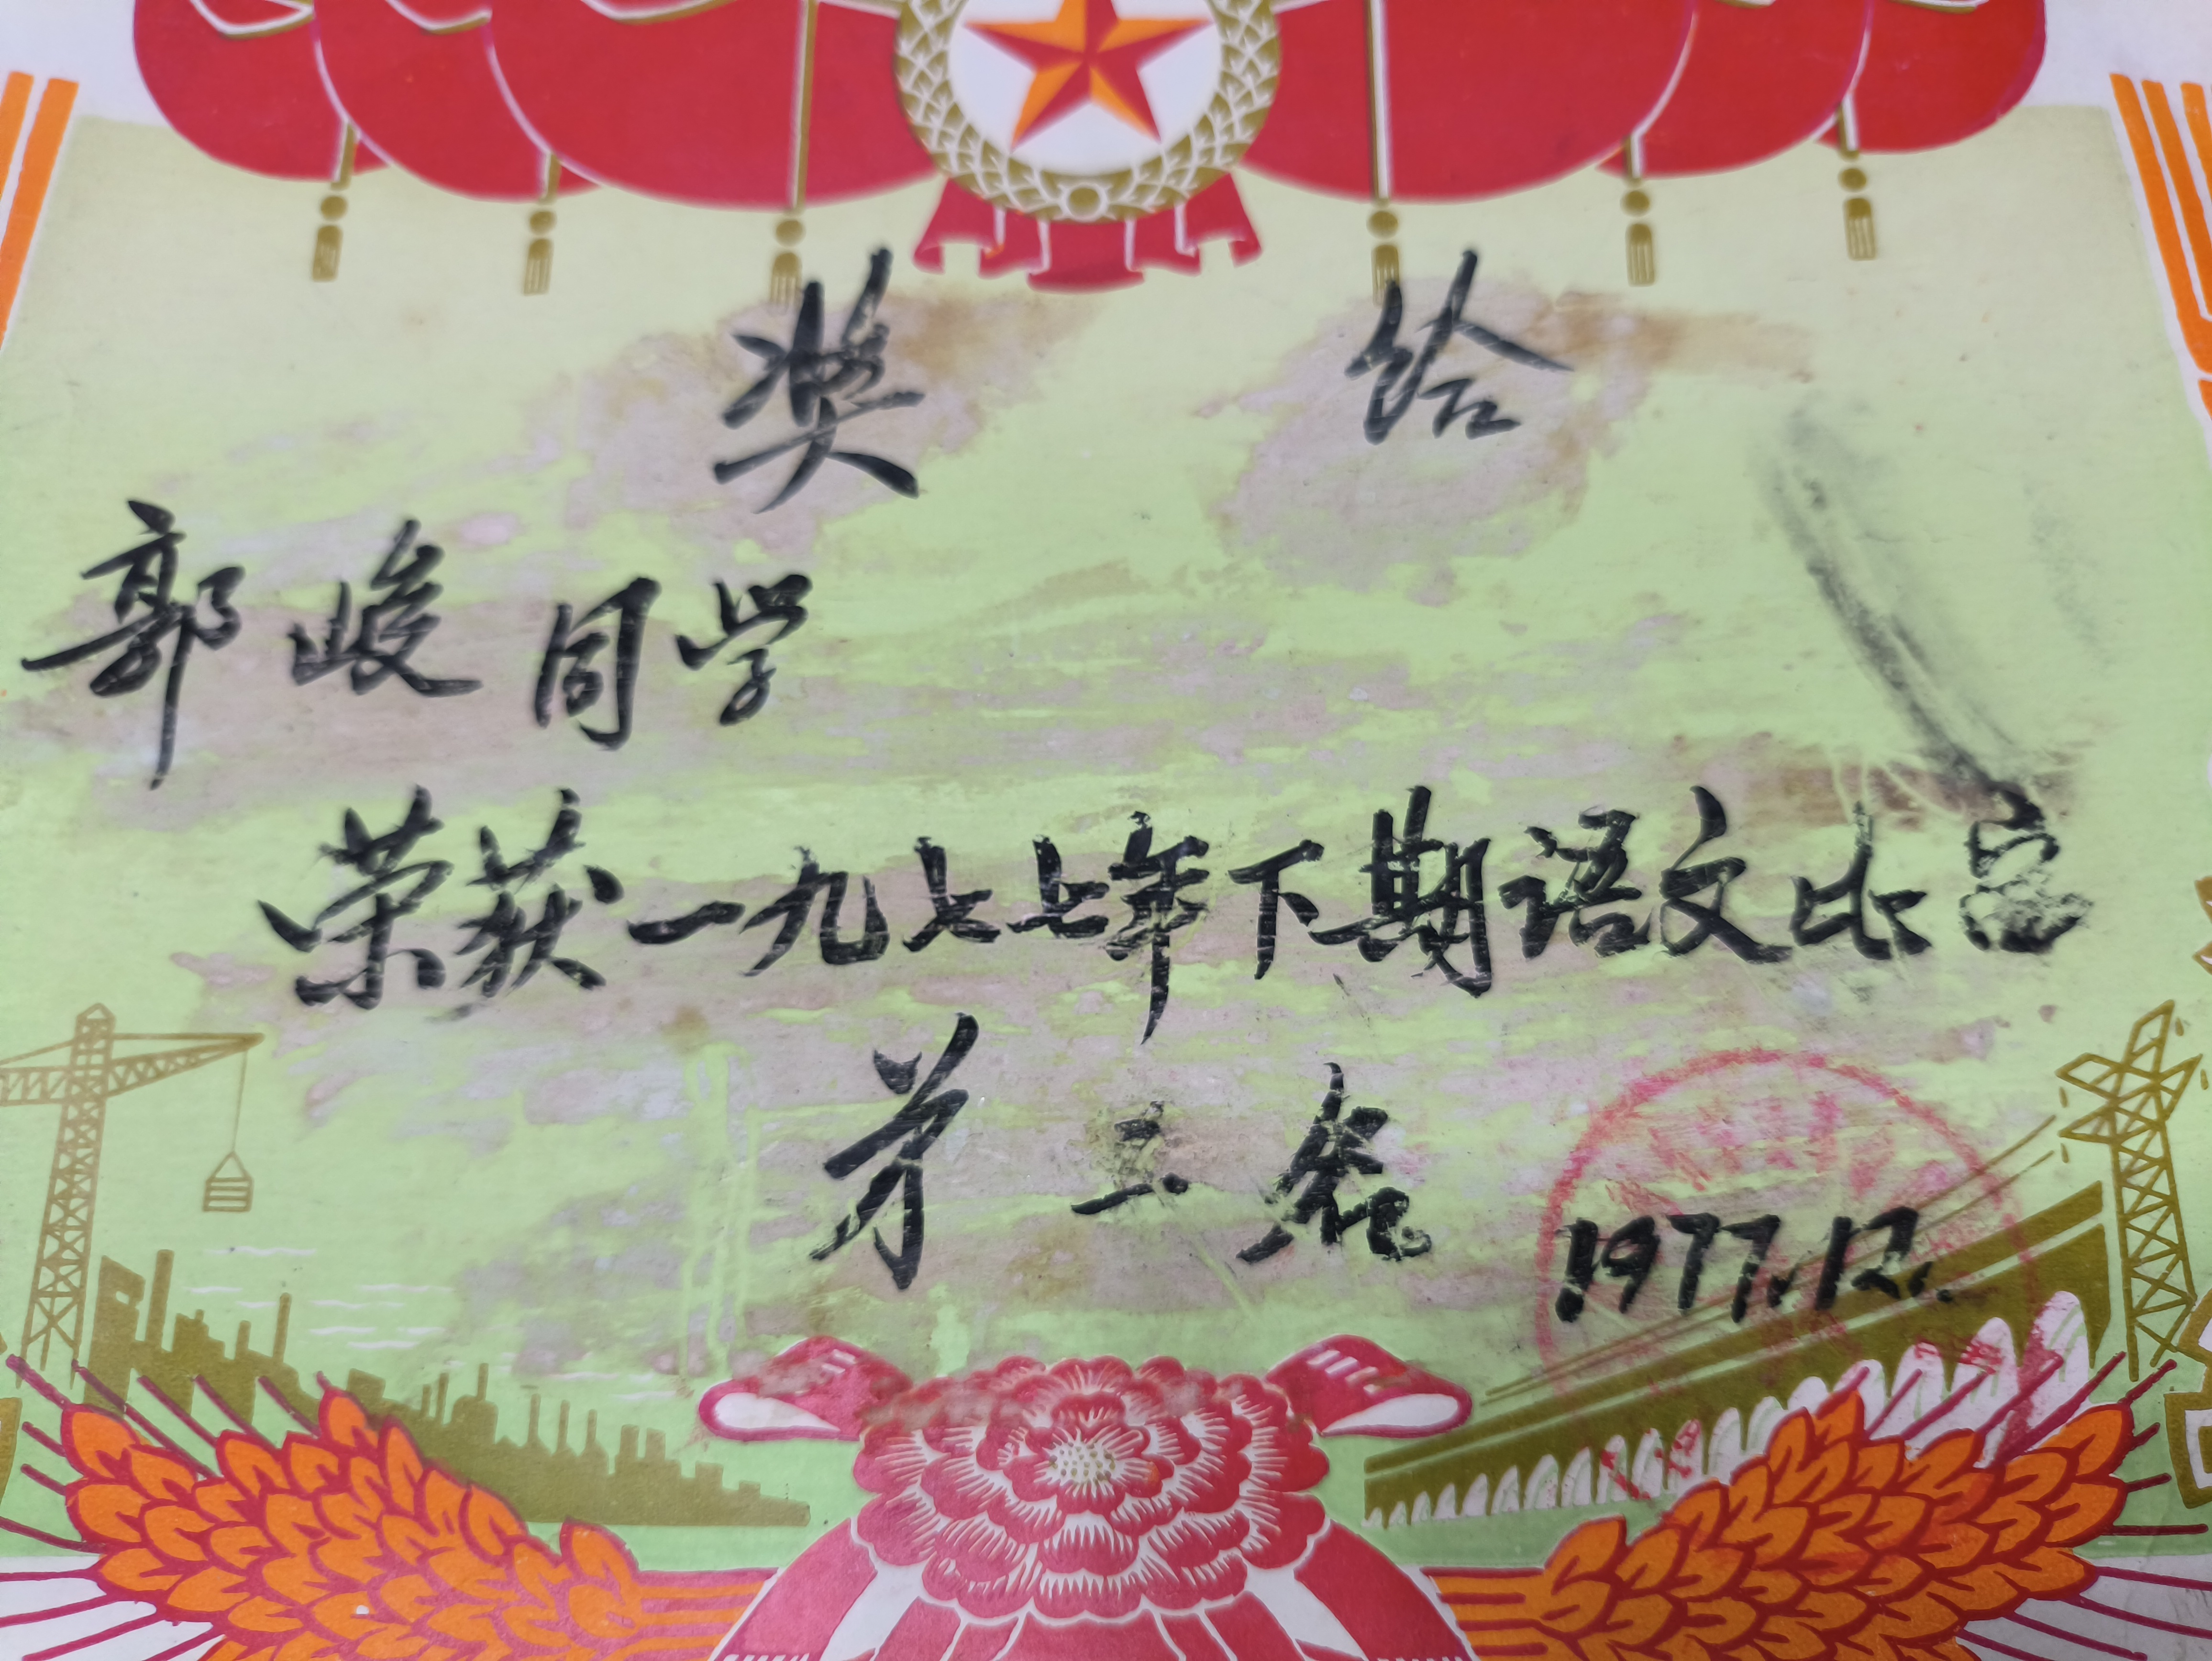 奖 给
郭峻同学
荣获一九七七年下期语文比赛
第三名
1977.12.